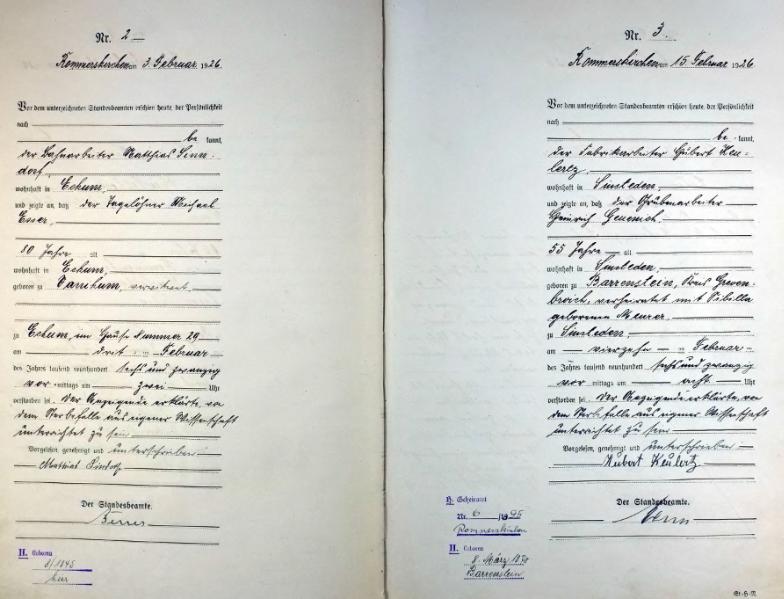 Nr. 2
Rommerskirchen am 3. Februar 1926
Vor dem unterzeichneten Standesbeamten erschien heute, der Persönlichkeit
nach
be kannt,
der Bahnarbeiter Matthias Sinn-
dorf,
wohnhaft in Eckum,
und zeigte an, daß der Tagelöhner Michael
Esser,
80 Jahre alt
wohnhaft in Eckum,
geboren zu verwitwet.
zu Eckum, im Hause Nummer 29
am drei Februar
des Jahres tausend neunhundert sechs und zwanzig
vor mittags um zwei Uhr
verstorben sei. Der Anzeigende erklärte, von
dem Sterbefalle aus eigener Wissenschaft
unterrichtet zu sein
Vorgelesen, genehmigt und unterschrieben
Der Standesbeamte.
II. Geboren
Nr. 3.
Rommerskirchen am 15 Februar 1926
Vor dem unterzeichneten Standesbeamten erschien heute, der Persönlichkeit
nach
be kannt,
der Fabrikarbeiter Hubert Keu-
lertz,
wohnhaft in Sinsteden,
und zeigte an, daß der Grubenarbeiter
Heinrich
55 Jahre alt
wohnhaft in Sinsteden,
geboren zu Barrenstein, Kreis Greven-
broich, verheiratet mit Sibilla
geborenen Meurer.
zu Sinsteden,
am vierzehn Februar
des Jahres tausend neunhundert sechs und zwanzig
vor mittags um acht Uhr
verstorben sei. Der Anzeigende erklärte, von
dem Sterbefalle aus eigener Wissenschaft
unterrichtet zu sein
Vorgelesen, genehmigt und unterschrieben
Hubert Keulertz
Der Standesbeamte.
Nr. 6
Rommerskirchen
II. Geboren
8. März 1870
Barrenstein